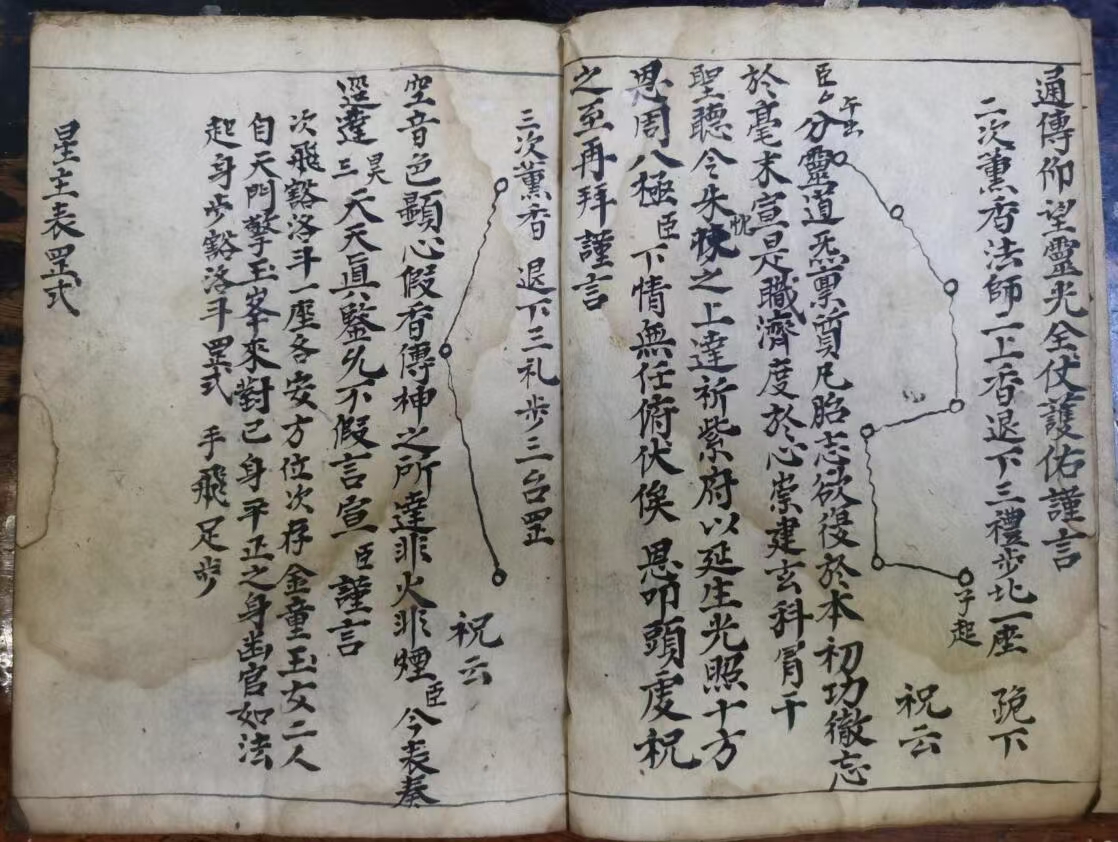 通傳仰望靈光全仗護佑謹言
二次薰香法師二上香退下三禮步北一座 跪下
祝云
子起
午出
臣ム分靈道炁禀質凡胎志欲復於本初功徹忘
於毫末宣是職濟度於心崇建玄科冐干
聖聽令朱陵之上達祈紫府以延生光照十方
恩周八極臣下情無任俯伏俟恩叩頭虔祝
之至再拜謹言
三次薰香 退下三礼步三台罡
祝云
空音色顯心假香傳神之所達非火非煙臣今表奏
逕達三天昊天真鑒允不假言宣臣謹言
次飛豁洛斗一座各安方位次存金童玉女二人
自天門擎玉峯來對己身平正之身凾官如法
起身步豁洛斗罡式 手飛足步
星主表罡式